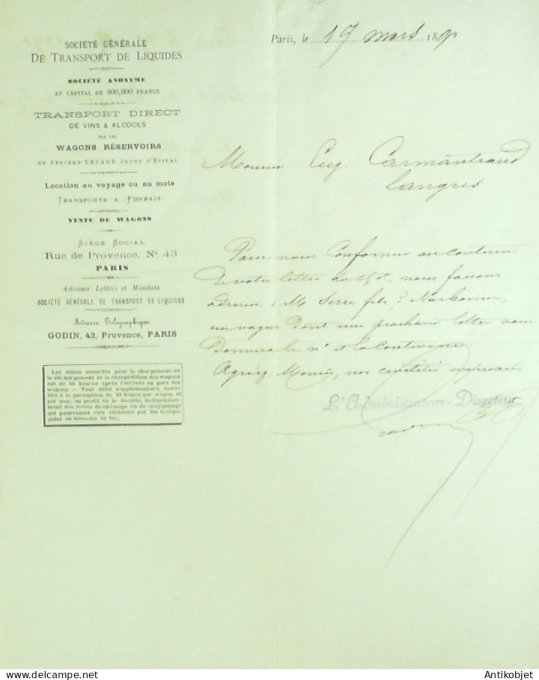 SOCIÉTÉ GÉNÉRALE
DE TRANSPORT DE LIQUIDES
SOCIÉTÉ ANONYME
AU CAPITAL DE 900,000 FRANCS
TRANSPORT DIRECT
DE VINS & ALCOOLS
PAR LES
WAGONS RÉSERVOIRS
DU SYSTÈME LEPAGE JEUNE D'EPINAL
Location au voyage ou au mois
TRANSPORTS A FORFAIT
VENTE DE WAGONS
SIÈGE SOCIAL
Rue de Provence, N° 43
PARIS
Adresser Lettres et Mandats
SOCIÉTÉ GÉNÉRALE DE TRANSPORT DE LIQUIDES
Adresse Télégraphique
GODIN, 43, Provence, PARIS
Les délais accordés pour le chargement ou
le déchargement et la réexpédition des wagons
est de 48 heures après l'arrivée en gare des
wagons - Tout délai supplémentaire donne
lieu à la perception de 10 francs par wagon et
par jour, au profit de la Société, indépendam-
ment des droits de
qui pourraient être réclamés par les Compa-
gnies de chemins de fer.
Paris, le 17 mars 189
Monsieur Eug. Carmantrand
Langres
Pour nous conformer au contenu
de votre lettre du 15 ct, nous faisons
adresser à M. Serre fils à Narbonne
un wagon dont une prochaine lettre vous
donnera le n° & la contenance
Agréez Monsieur, nos civilités empressées
L'Administrateur-Directeur